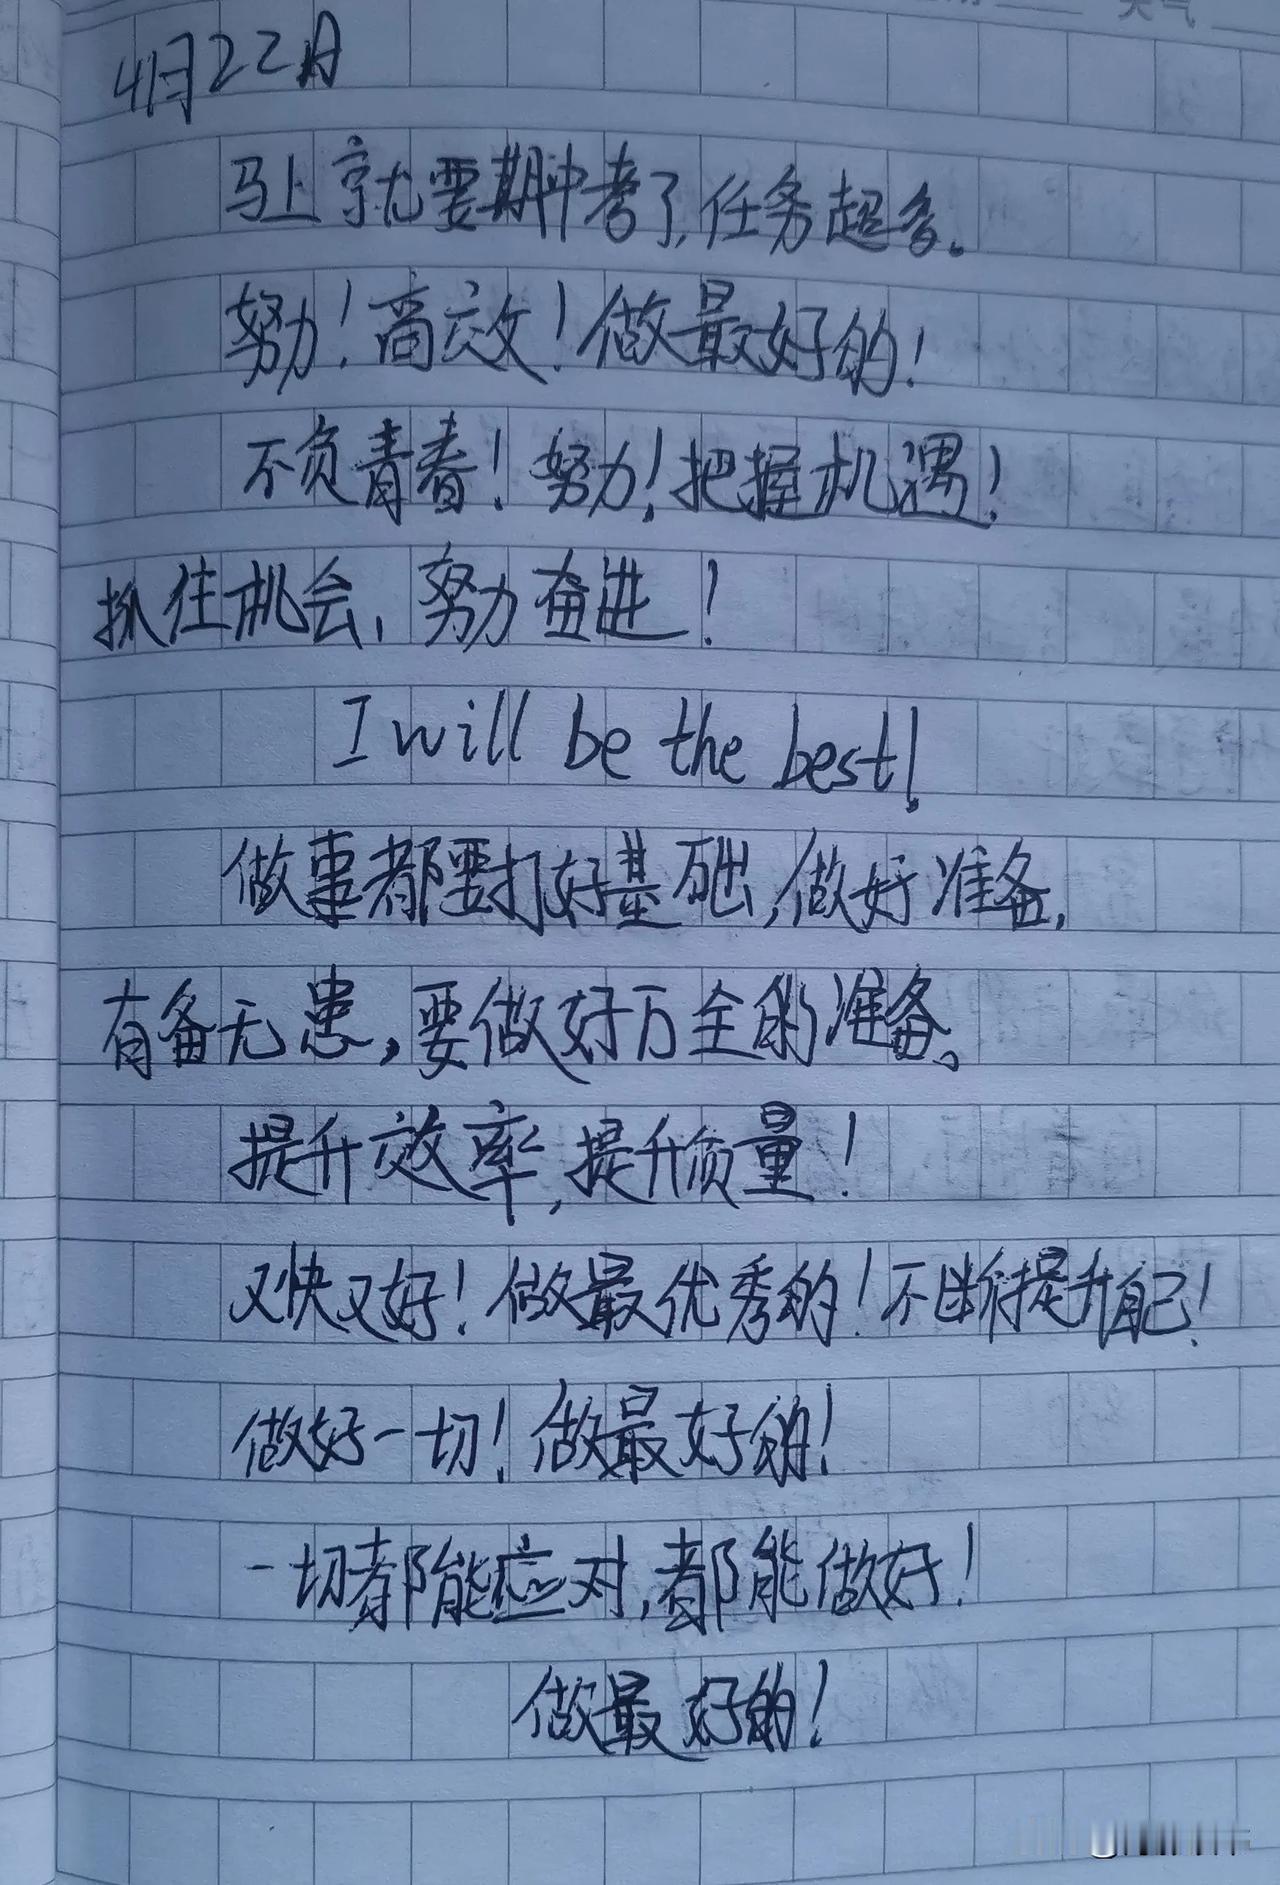 天气
4月22日
马上就要期中考了,任务超多。
努力!高效!做最好的!
不负青春!努力!把握机遇!
抓住机会,努力奋进!
I will be the best!
做事都要打好基础,做好准备,
有备无患,要做好万全的准备。
提升效率,提升质量!
又快又好!做最优秀的!不断提升自己!
做好一切!做最好的!
一切都能应对,都能做好!
做最好的!